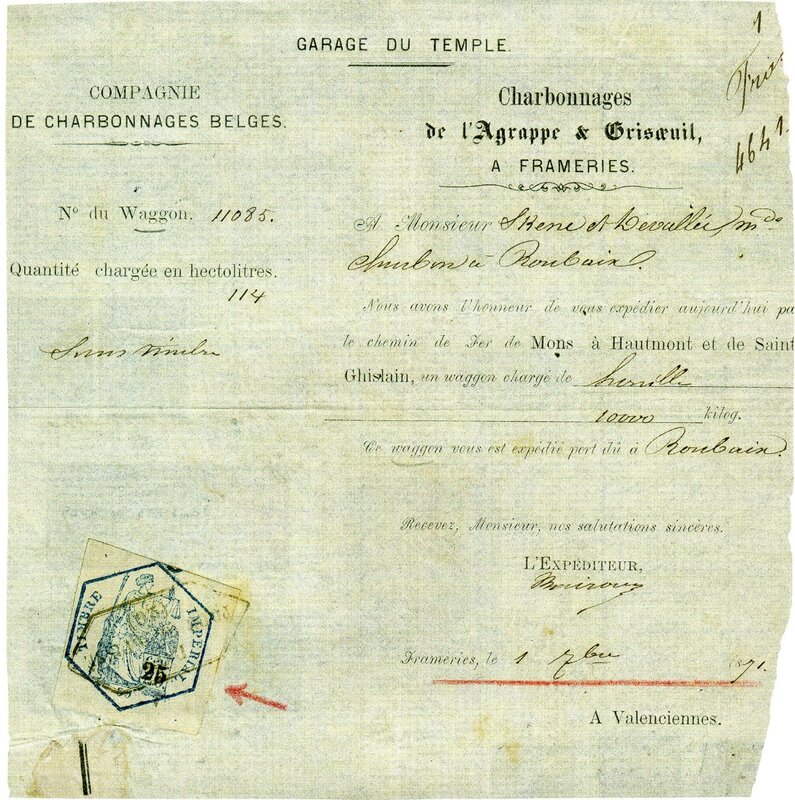 GARAGE DU TEMPLE.
COMPAGNIE
DE CHARBONNAGES BELGES.
No du Waggon. 11085.
Quantité chargée en hectolitres.
114
Sans timbre
TIMBRE IMPERIAL
25
1
4641.
Charbonnages
de l'Agrappe & Grisœuil,
A FRAMERIES.
A Monsieur Skene et Devallée, mds
Charbon à Roubaix.
Nous avons l'honneur de vous expédier aujourd'hui pa
le chemin de Fer de Mons à Hautmont et de Saint
Ghislain, un waggon chargé de
10000 kilog.
Ce waggon vous est expédié port dû à Roubaix.
Recevez, Monsieur, nos salutations sincères.
L'EXPÉDITEUR,
Frameries, le 1 7bre 1871.
A Valenciennes.